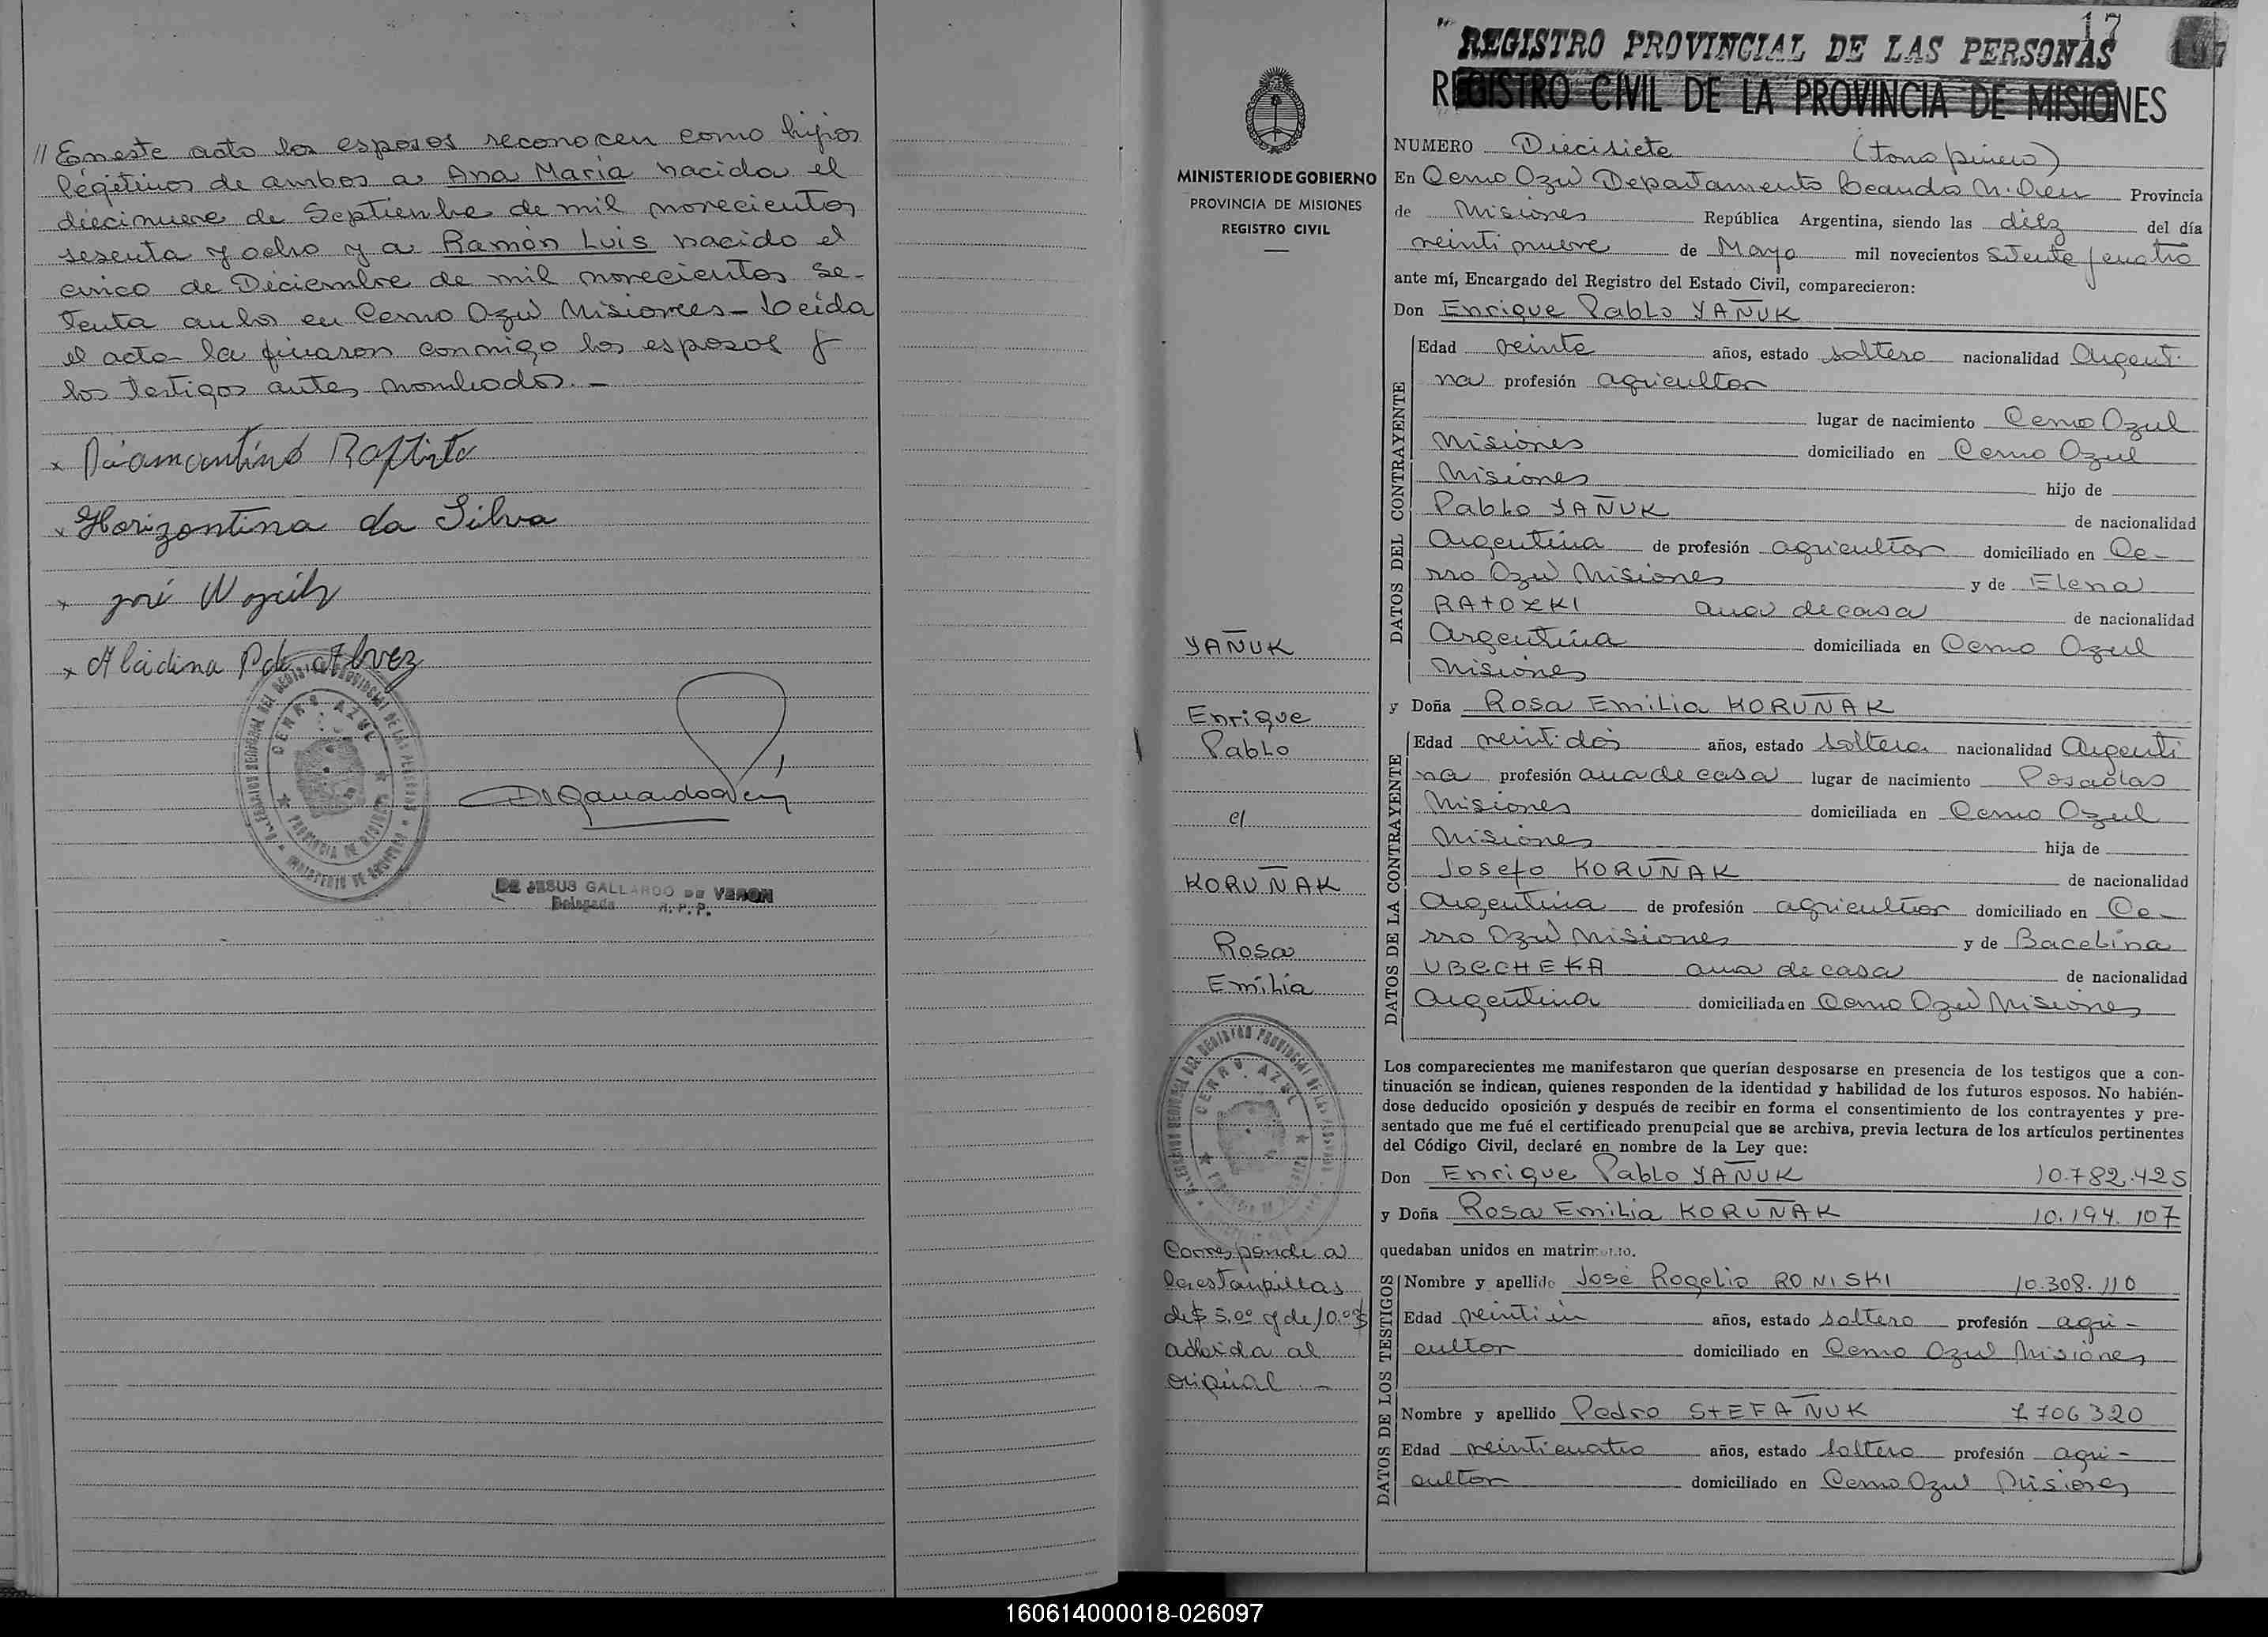 // En este acto los esposos reconocen como hijos
legítimos de ambos a Ana María nacida el
diecinueve de Septiembre de mil novecientos
sesenta y ocho y a Ramón Luis nacido el
cinco de Diciembre de mil novecientos se-
tenta ambos en Cerro Azul Misiones - Leída
el acta la firmaron conmigo los esposos y
los testigos antes nombrados. -
x Diamantino
x Horizontina da Silva
x josé
x Aladina P. de Alvez
CERRO AZUL
PROVINCIA DE MISIONES
DE JESUS GALLARDO DE VERON
Delegada R.P.P.
17
" REGISTRO PROVINCIAL DE LAS PERSONAS
REGISTRO CIVIL DE LA PROVINCIA DE MISIONES
MINISTERIO DE GOBIERNO
PROVINCIA DE MISIONES
REGISTRO CIVIL
YAÑUK
Enrique
Pablo
c/
KORUÑAK
Rosa
Emilia
CERRO AZUL
Corresponde a
las estampillas
de $ 5.00 y de 10.00 $
adherida al
original. -
NUMERO Diecisiete (tomo primero)
En Cerro Azul Departamento Leandro N. Alem Provincia
de Misiones República Argentina, siendo las diez del día
veintinueve de Mayo mil novecientos setenta y cuatro
ante mí, Encargado del Registro del Estado Civil, comparecieron:
Don Enrique Pablo YAÑUK
DATOS DEL CONTRAYENTE
Edad veinte años, estado soltero nacionalidad Argenti
na profesión agricultor
lugar de nacimiento Cerro Azul
Misiones domiciliado en Cerro Azul
Misiones hijo de
Pablo YAÑUK de nacionalidad
Argentina de profesión agricultor domiciliado en Ce-
rro Azul Misiones y de Elena
RATOZKI ama de casa de nacionalidad
Argentina domiciliada en Cerro Azul
Misiones
y Doña Rosa Emilia KORUÑAK
DATOS DE LA CONTRAYENTE
Edad veintidós años, estado soltera nacionalidad Argenti
na profesión ama de casa lugar de nacimiento Posadas
Misiones domiciliada en Cerro Azul
Misiones hija de
Josefo KORUÑAK de nacionalidad
Argentina de profesión agricultor domiciliado en Ce-
rro Azul Misiones y de Bacelina
UBECHEKA ama de casa de nacionalidad
Argentina domiciliada en Cerro Azul Misiones
Los comparecientes me manifestaron que querían desposarse en presencia de los testigos que a con-
tinuación se indican, quienes responden de la identidad y habilidad de los futuros esposos. No habién-
dose deducido oposición y después de recibir en forma el consentimiento de los contrayentes y pre-
sentado que me fué el certificado prenupcial que se archiva, previa lectura de los artículos pertinentes
del Código Civil, declaré en nombre de la Ley que:
Don Enrique Pablo YAÑUK 10.782.425
y Doña Rosa Emilia KORUÑAK 10.194.107
quedaban unidos en matrimonio.
DATOS DE LOS TESTIGOS
Nombre y apellido José Rogelio RONISKI 10.308.110
Edad veintiún años, estado soltero profesión agri-
cultor domiciliado en Cerro Azul Misiones
Nombre y apellido Pedro STEFAÑUK 7706320
Edad veinticuatro años, estado soltero profesión agri-
cultor domiciliado en Cerro Azul Misiones
160614000018-026097